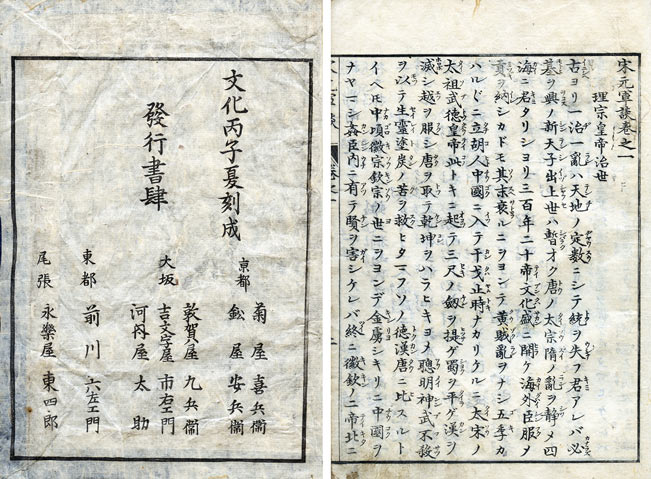 宋元軍談卷之一
理宗皇帝治世
古ヨリ一治一亂ハ天地ノ定数ニシテ統ヲ失フ君アレバ必
基ヲ興ノ新天子出上世ハ暫オク唐ノ太宗隋ノ亂ヲ静メ四
海ニ君タリシヨリ三百年二十帝文化盛ニ開ケ海外臣服メ
貢ヲ納シカドモ其末衰ルニヲヨンデ黄賊亂ヲナシ五季カ
ハル〴〵ニ立胡人中國ニ入テ干戈止時ナカリクルニ太宋ノ
太祖武徳皇帝此トキニ起テ三尺ノ劔ヲ提ゲ蜀ヲ平ゲ漢ヲ
滅シ越ヲ服シ唐ヲ取テ乾坤ヲハラヒキヨメ聰明神武不殺
ヲ以テ生靈塗炭ノ苦ヲ救ヒタマフソノ徳漢唐ニ比スルト
イヘ𪜈中頃徽宗欽宗ノ世ニヲヨンデ金虜シキリニ中國ヲ
ナヤマシ姦臣内ニ有テ賢ヲ害シケレバ終ニ徽欽ノ二帝北ニ
文化丙子夏刻成
發行書肆
京都 菊屋喜兵衞
鉛屋安兵衞
大坂 敦賀屋九兵衞
吉文字屋市右エ門
河内屋太助
東都 前川六左エ門
尾張 永樂屋東四郎